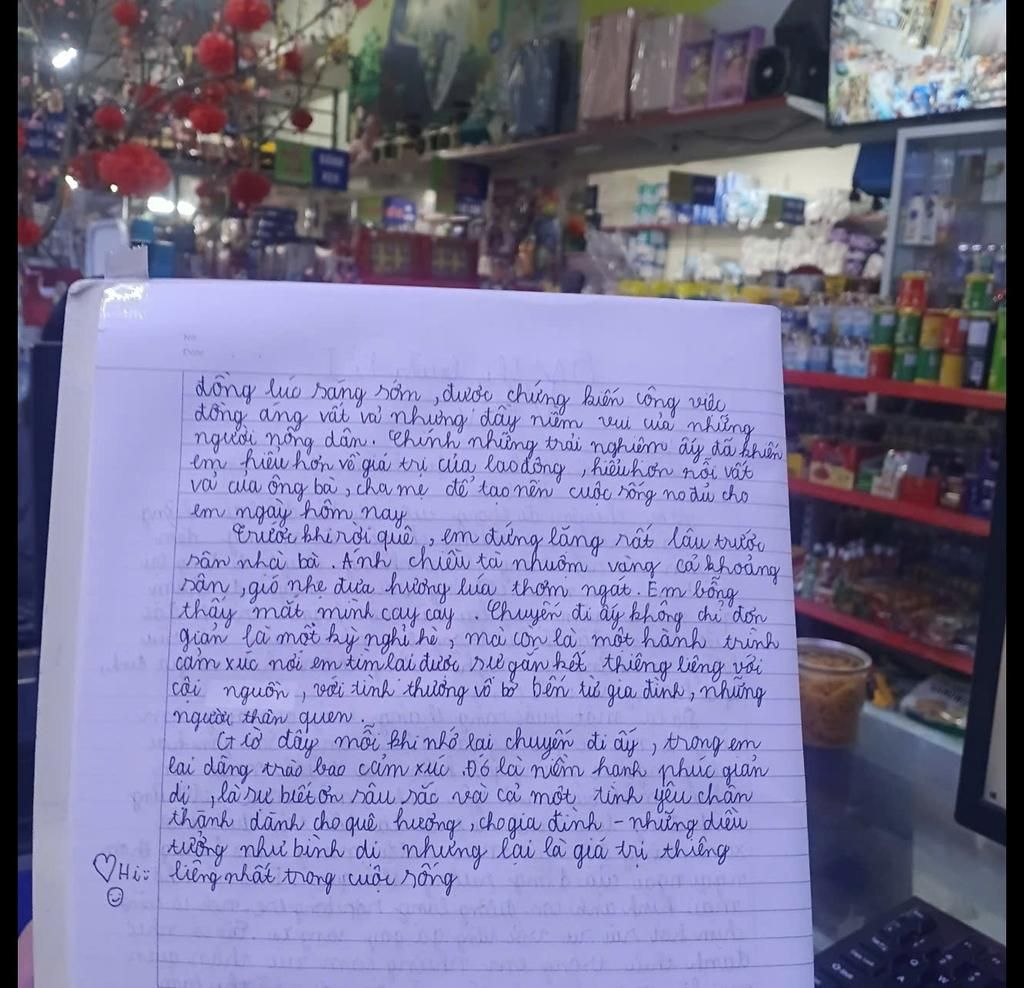 No.
Date
đồng lúc sáng sớm, được chứng kiến công việc
đồng áng vất vả nhưng đầy niềm vui của những
người nông dân. Chính những trải nghiệm ấy đã khiến
em hiểu hơn về giá trị của lao động, hiểu hơn nỗi vất
vả của ông bà, cha mẹ để tạo nên cuộc sống no đủ cho
em ngày hôm nay
Trước khi rời quê, em đứng lặng rất lâu trước
sân nhà bà. Ánh chiều tà nhuộm vàng cả khoảng
sân, gió nhẹ đưa hương lúa thơm ngát. Em bỗng
thấy mắt mình cay cay. Chuyến đi ấy không chỉ đơn
giản là một kỳ nghỉ hè, mà còn là một hành trình
cảm xúc nơi em tìm lại được sự gắn kết thiêng liêng với
cội nguồn, với tình thương vô bờ bến từ gia đình, những
người thân quen.
Giờ đây mỗi khi nhớ lại chuyến đi ấy, trong em
lại dâng trào bao cảm xúc. Đó là niềm hạnh phúc giản
dị, là sự biết ơn sâu sắc và cả một tình yêu chân
thành dành cho quê hương, cho gia đình - những điều
tưởng như bình dị nhưng lại là giá trị thiêng
♡Hi: liêng nhất trong cuộc sống